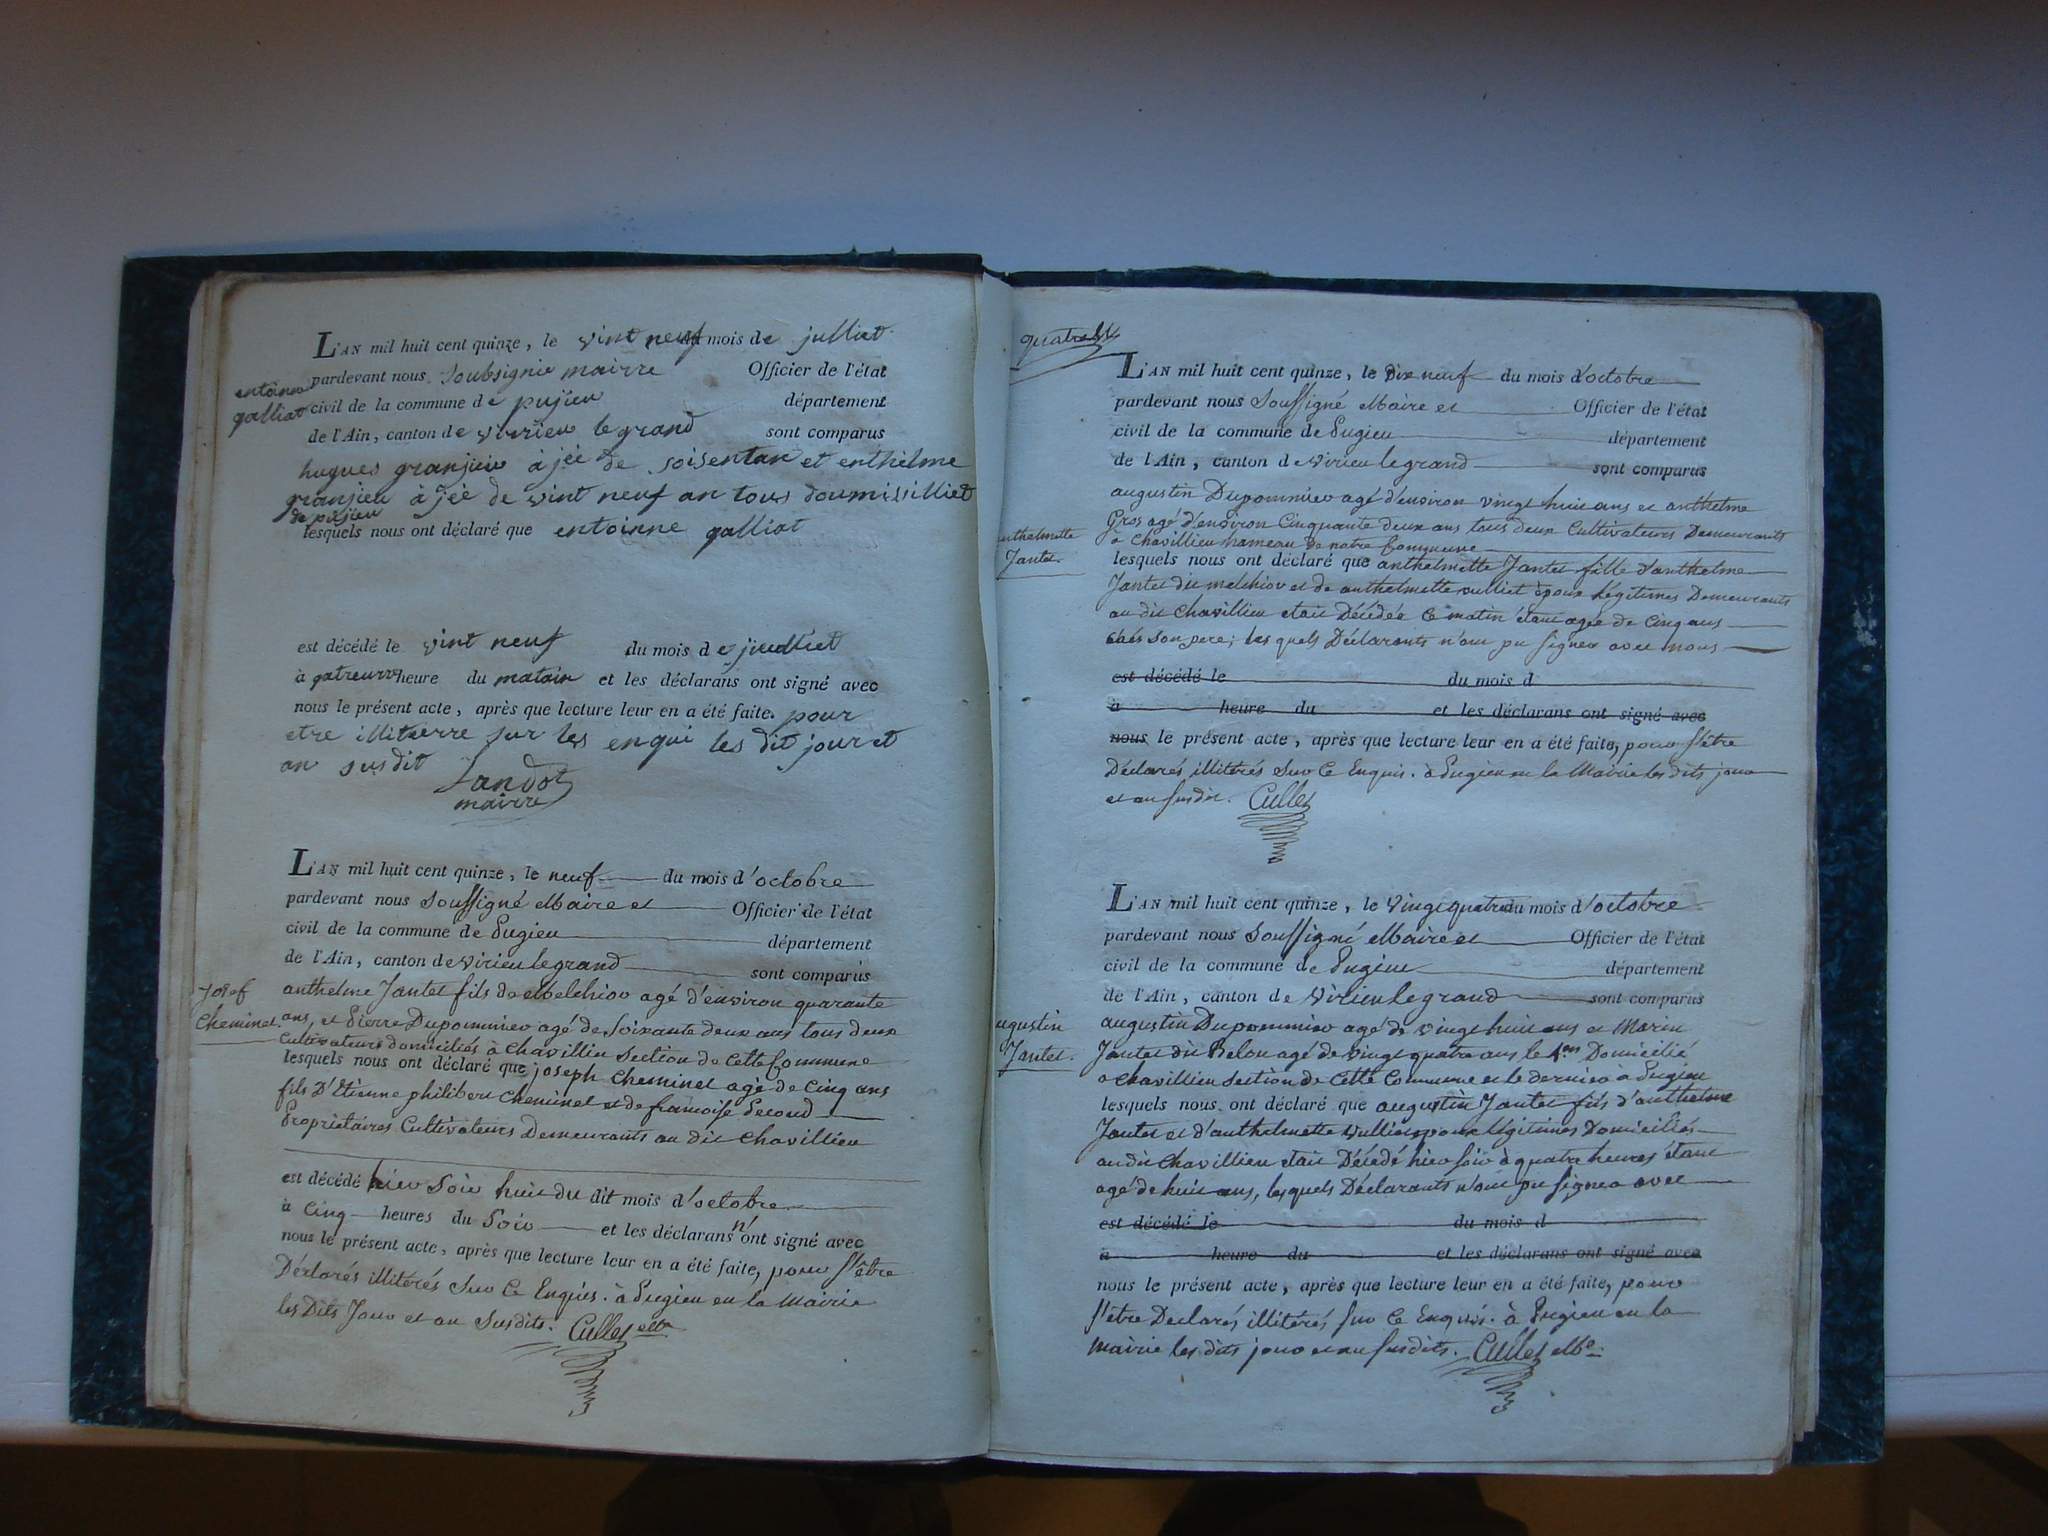 L'AN mil huit cent quinze, le vint neuf mois de julliet
pardevant nous soubsignie mairre Officier de l'état
entoinne
galliat
civil de la commune de pujieu département
de l'Ain, canton de virrieu le grand sont comparus
hugues granjieu àjée de soisentan et enthelme
granjieu àjée de vint neuf an tous doumissilliet
de pujieu
lesquels nous ont déclaré que entoinne galliat
est décédé le vint neuf du mois de juelliet
à heure du matain et les déclarans ont signé avec
nous le présent acte, après que lecture leur en a été faite. pour
etre illiterre sur les enqui les dit jour et
an susdit
mairre
L'AN mil huit cent quinze, le neuf du mois d'octobre
pardevant nous soussigné Maire et Officier de l'état
civil de la commune de Pugieu département
de l'Ain, canton de virieu le grand sont comparus
Josef
Cheminet.
anthelme Jantet fils de Melchior agé d'environ quarante
ans, et Pierre Dupommier agé de soixante deux ans tous deux
Cultivateurs domiciliés à Chavillieu section de Cette Commune
lesquels nous ont déclaré que joseph Cheminet agé de Cinq ans
fils D'Etienne philibert Cheminet et de francoise Secoud
Propriétaires Cultivateurs Demeurants au dit Chavillieu
est décédé hier soir huit du dit mois d'octobre
à Cinq heures du soir et les déclarans n'ont signé avec
nous le présent acte, après que lecture leur en a été faite, pour s'être
Déclarés illitérés sur Ce Enquis. à Pugieu en la Mairie
les Dits Jour et an susdits. Cullet
quatre
L'AN mil huit cent quinze, le dix neuf du mois d'octobre
pardevant nous soussigné Maire et Officier de l'état
civil de la commune de Pugieu département
de l'Ain, canton de virieu le grand sont comparus
augustin Dupommier agé d'environ vingt huit ans et anthelme
Gros agé d'environ Cinquante deux ans tous deux Cultivateurs Demeurants
a Chavillieu hameau de notre Commune
anthelmette
Jantet.
lesquels nous ont déclaré que anthelmette Jantet fille d'anthelme
Jantet dit melchior et de anthelmette vulliet époux légitimes Demeurants
au dit Chavillieu etait Décédée Ce matin étant agée de Cinq ans
chés son pere; les quels Déclarants n'ont pu signer avec nous
est décédé le du mois d
à heure du et les déclarans ont signé avec
nous le présent acte, après que lecture leur en a été faite, pour s'être
Déclarés illitérés sur Ce Enquis. à Pugieu en la Mairie les dits jour
et an susdit. Cullet
L'AN mil huit cent quinze, le vingt quatre du mois d'octobre
pardevant nous soussigné Maire et Officier de l'état
civil de la commune de Pugieu département
de l'Ain, canton de virieu le grand sont comparus
augustin
Jantet.
augustin Dupommier agé de vingt huit ans et Marin
Jantet dit Belon agé de vingt quatre ans le 1er Domicilié
a Chavillieu section de Cette Commune et le dernier à Pugieu
lesquels nous ont déclaré que augustin Jantet fils d'anthelme
Jantet et d'anthelmette vulliet époux légitimes Domiciliés
au dit Chavillieu etait Décédé hier soir à quatre heures étant
agé de huit ans, lesquels Déclarants n'ont pu signer avec
est décédé le du mois d
à heure du et les déclarans ont signé avec
nous le présent acte, après que lecture leur en a été faite, pour
s'être Declarés illitérés sur Ce Enquis. à Pugieu en la
Mairie les dits jour et an susdits. Cullet